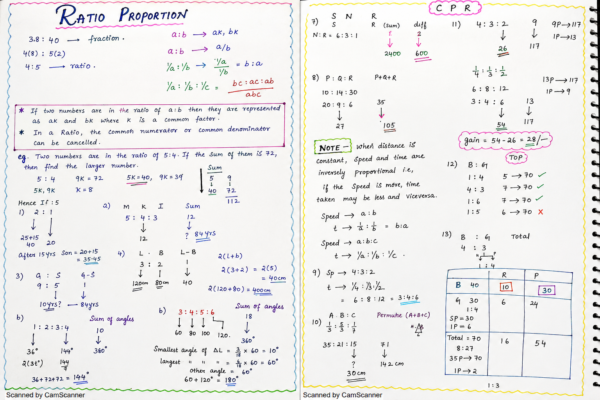 RATIO PROPORTION
3.8 : 40 → fraction.
4(8) : 5(2)
4:5 → ratio.
a:b → ak, bk
a:b → a/b
1/a : 1/b → 1/a / 1/b = b:a
1/a : 1/b : 1/c = bc:ac:ab / abc
* If two numbers are in the ratio of a:b then they are represented
as ak and bk where k is a common factor.
* In a Ratio, the common numerator or common denominator
can be cancelled.
eg. Two numbers are in the ratio of 5:4. If the sum of them is 72,
then find the larger number.
5 : 4 9K = 72 5K = 40, 9K + 39
5K, 9K K = 8
Sum
5 9
40 72
112
Hence If :5
1) 2 : 1
25+15
40 20
After 15yrs Son = 20+15
= 35.45
2) M K I Sum
5 : 4 : 3 12
12 ? 84yrs
3) G : S G-S
9 : 5 1
10yrs? ← 84yrs
4) L . B L-B
3 : 2
120cm 80cm 40
2(l+b)
2(3+2) = 2(5)
= 40cm
2(120+80) = 400cm
b) Sum of angles
1 : 2 : 3 : 4 10
36° 144° 360°
2(3t°) 144
36+72+72 = 144°
b) 3 : 4 : 5 : 6 Sum of angles
18
360°
60 80 100 120.
Smallest angle of ΔL = 3/18 × 60 = 10°
other angle = 60°
60 + 120° = 180°
Scanned by CamScanner
CPR
7) S N R
S R (sum) diff
N:R = 6:3:1
2400 600
8) P : Q : R P+Q+R
10 : 14 : 30
20 : 9 : 6 35
27 105
NOTE - when distance is
constant, Speed and time are
inversely proportional i.e,
if the Speed is more, time
taken may be less and viceversa.
Speed → a:b
t → 1/a : 1/b = b:a
Speed → a:b:c
t → 1/a : 1/b : 1/c .
9) Sp → 4:3:2
t → 1/4 : 1/3 : 1/2
= 6 : 8 : 12 = 3:4:6
10) A . B : C Permute (A+B+C)
35 : 21 : 15 71
? 142 cm
30cm
11) 4 : 3 : 2 9 9P → 117
1P → 13
26 117
1/4 : 1/3 : 1/2
6 : 8 : 12 13P → 117
1P → 9
3 : 4 : 6 13
54 117
gain = 54 - 26 = 28/-
TOP
12) B : G
1:4 5 → 70 ✓
4:3 7 → 70 ✓
1:6 7 → 70 ✓
1:5 6 → 70 ✗
13) B : G Total
4 : 3
1 : 4
R P
B 40 10 30
G 30 6 24
1:4
5P = 30
1P = 6
Total = 70 16 54
8:27
35P → 70
1P → 2
1:3
Scanned by CamScanner